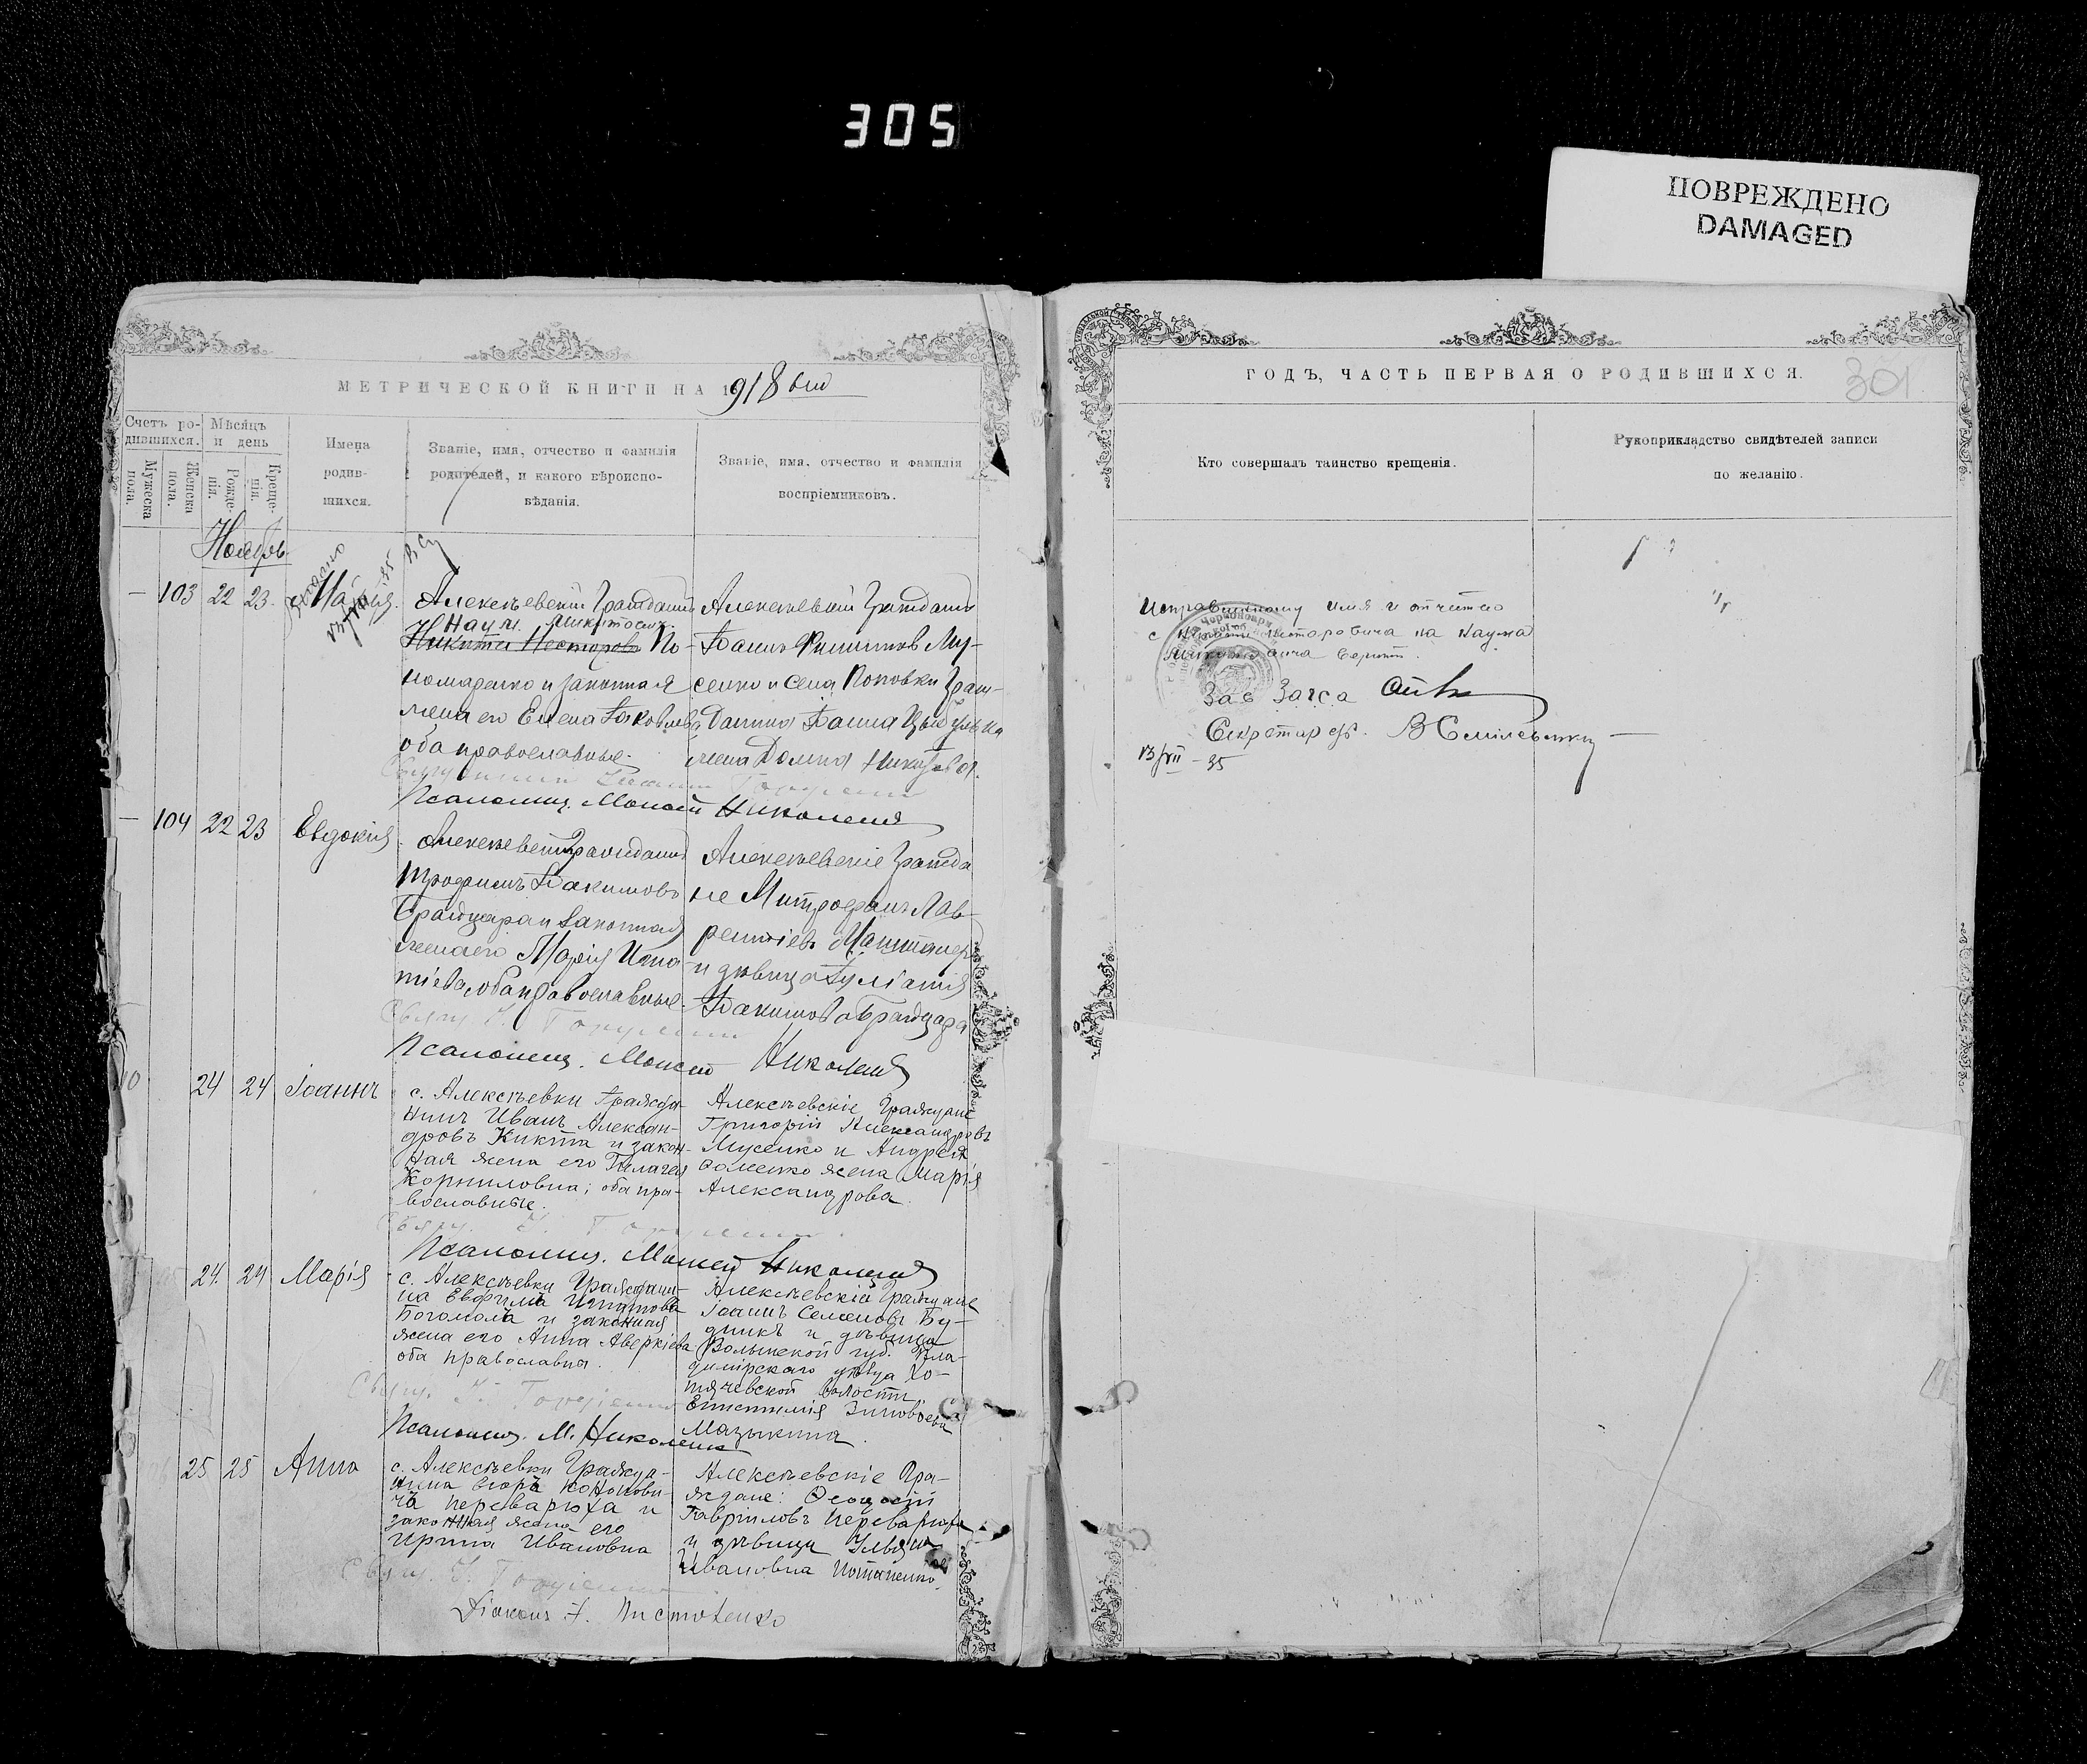 305
ПОВРЕЖДЕНО
DAMAGED
МЕТРИЧЕСКОЙ КНИГИ НА 1918 год
Счетъ ро-
дившихся.
Мѣсяцъ
и день
Мужеска
пола.
Женска
пола.
Рожде-
нія.
Креще-
нія.
Имена
родив-
шихся.
Званіе, имя, отчество и фамилія
родителей, и какого вѣроиспо-
вѣданія.
Званіе, имя, отчество и фамилія
воспріемниковъ.
Ноябрь
— 103 22 23.
Алексѣевскій Гражданин
Наум Никитович
Никита Несторовъ По-
номаренко и законная
жена его Елена Яковлева
оба православные.
Алексѣевскій Гражданин
Іоаннъ Филиппов Му-
сенко и села Поповки Граж-
данина Іоанна Цыбулька
жена Домна Никитовна.
Псаломщ. Моисей Николенко
— 104 22 23 Евдокія
Алексѣевскій Гражданинъ
Трофимъ Іоакимовъ
Бражцара и законная
жена его Марія Игна-
тіева, оба православные.
Алексѣевскіе Гражда
не Митрофанъ Лав-
рентіевъ Машталер
и дѣвица Іуліанія
Іоакимова Бражцара
Псаломщ. Моисей Николенко
10 24 24 Іоаннъ
с. Алексѣевки Гражда-
нинъ Иванъ Алексан-
дровъ Кикта и закон-
ная жена его Пелагея
Корниловна; оба пра-
вославные.
Алексѣевскіе Граждане
Григорій Александровъ
Мусенко и Андрея
жена Марія
Александрова.
Псаломщ. Моисей Николенко
24 24 Марія
с. Алексѣевки Граждани-
на Евфима Игнатова
Богомола и законная
жена его Анна Аверкіева
оба православна.
Алексѣевскій Граждане
Іоаннъ Семеновъ Бу-
дникъ и дѣвица
Волынской губ. Вла-
димірскаго уѣзда Хо-
тячевской волости
Епистимія Зиновьева
Мазыкина.
Псаломщ. М. Николенко
25 25 Анна
с. Алексѣевки Гражда-
нина Егора Кононови-
ча Переварюха и
законная жена его
Ирина Ивановна
Алексѣевскіе Гра-
ждане: Ѳеодосій
Гавриловъ Переварюха
и дѣвица Ульяна
Ивановна Потапенко.
Діаконъ
ГОДЪ, ЧАСТЬ ПЕРВАЯ О РОДИВШИХСЯ.
301
Кто совершалъ таинство крещенія.
Рукоприкладство свидѣтелей записи
по желанію.
Исправленному имя и отчество
с Никити Нестаровича на Наума
Микитовича верить.
Зав Загса
Секретарь
13/VII – 35